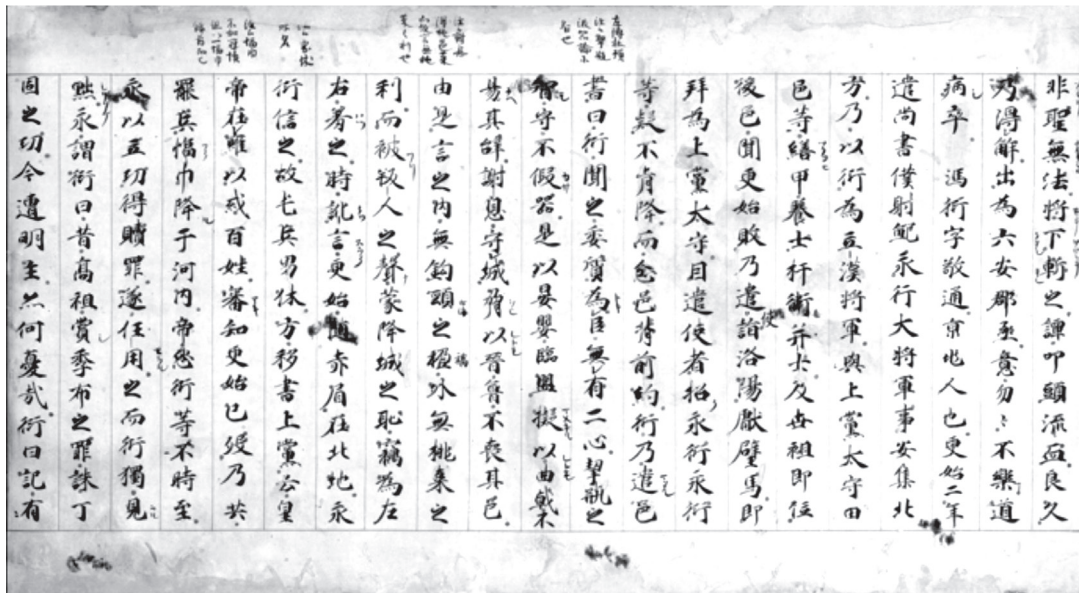 非聖無法將下斬之譚叩頭流血良久
乃得解出為六安郡丞意忽々不樂道
病卒　馮衍字敬通京兆人也更始二年
遣尚書僕射鮑永行大將軍事安集北
方乃以衍為立漢將軍與上黨太守田
邑等繕甲養士扞衛并土及世祖即位
後邑聞更始敗乃遣使詣洛陽獻璧馬即
拜為上黨太守因遣使者招永衍永衍
等疑不肯降而忿邑背前約衍乃遺邑
書曰衍聞之委質為臣無有二心挈瓶之
智守不假器是以晏嬰臨盟擬以曲戟不
易其辭謝息守郕脅以晉魯不喪其邑
由是言之內無鉤頸之禍外無桃萊之
利而被叛人之聲蒙降城之恥竊為左
右羞之時訛言更始隨赤眉在北地永
衍信之故屯兵界休方移書上黨云皇
帝在雍以惑百姓審知更始已歿乃共
罷兵幅巾降于河內帝怨衍等不時至
永以立功得贖罪遂任用之而衍獨見
黜永謂衍曰昔高祖賞季布之罪誅丁
固之功今遭明主亦何憂哉衍曰記有